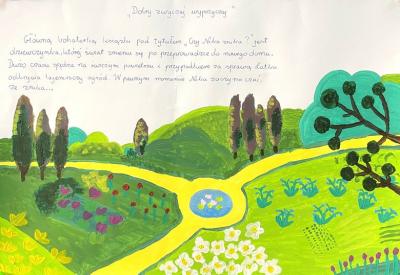 „Dobry zwyczaj wypożyczaj"
Główną bohaterką książki pod tytułem „Czy Nitka znika?" jest
dziewczynka, której świat zmienił się po przeprowadzce do nowego domu.
Dużo czasu spędza na świeżym powietrzu i przypadkiem za sprawą
odkrywa tajemniczy ogród. W pewnym momencie Nitka zaczyna czuć,
że znika...